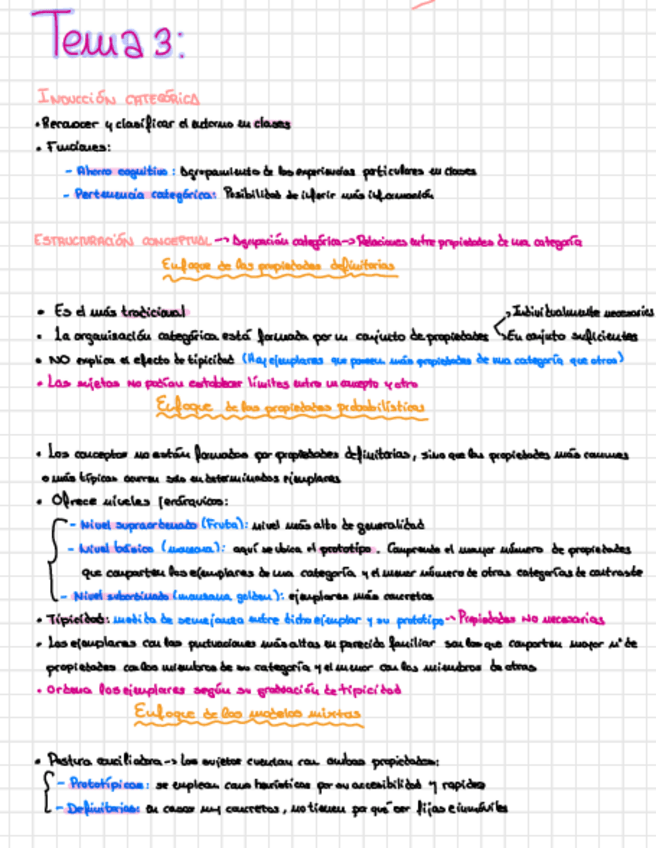 Tema 3:
INDUCCIÓN CATEGÓRICA
• Reconocer y clasificar el entorno en clases
• Funciones:
– Ahorro cognitivo: Agrupamiento de las experiencias particulares en clases
– Pertenencia categórica: Posibilidad de inferir más información
ESTRUCTURACIÓN CONCEPTUAL -> Agrupación categórica -> Relaciones entre propiedades de una categoría
Enfoque de las propiedades definitorias
• Es el más tradicional
Individualmente necesarias
• La organización categórica está formada por un conjunto de propiedades
En conjunto suficientes
• NO explica el efecto de tipicidad (Hay ejemplares que poseen más propiedades de una categoría que otros)
• Los sujetos no podían establecer límites entre un concepto y otro
Enfoque de las propiedades probabilísticas
• Los conceptos no están formados por propiedades definitorias, sino que las propiedades más comunes
o más típicas ocurren solo en determinados ejemplares
• Ofrece niveles jerárquicos:
– Nivel supraordenado (Fruta): nivel más alto de generalidad
– Nivel básico (manzana): aquí se ubica el prototipo. Comprende el mayor número de propiedades
que comparten los ejemplares de una categoría y el menor número de otras categorías de contraste
– Nivel subordinado (manzana golden): ejemplares más concretos
• Tipicidad: medida de semejanza entre dicho ejemplar y su prototipo -> Propiedades NO necesarias
• Los ejemplares con las puntuaciones más altas en parecido familiar son los que comparten mayor nº de
propiedades con los miembros de su categoría y el menor con los miembros de otras
• Ordena los ejemplares según su gradación de tipicidad
Enfoque de los modelos mixtos
• Postura conciliadora -> Los sujetos cuentan con ambas propiedades:
– Prototípicas: se emplean como heurísticos por su accesibilidad y rapidez
– Definitorias: en casos muy concretos, no tienen por qué ser fijas e inmóviles